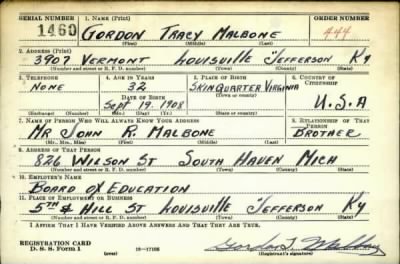 SERIAL NUMBER 1. NAME (Print) ORDER NUMBER
1460 GORDON TRACY MALBONE 444
(First) (Middle) (Last)
2. ADDRESS (Print)
3907 VERMONT LOUISVILLE JEFFERSON KY
(Number and street or R. F. D. number) (Town) (County) (State)
3. TELEPHONE 4. AGE IN YEARS 5. PLACE OF BIRTH 6. COUNTRY OF CITIZENSHIP
NONE 32 SKINQUARTER VIRGINIA
DATE OF BIRTH (Town or county)
Sept 19. 1908 U.S.A
(Mo.) (Day) (Yr.) (State or country)
7. NAME OF PERSON WHO WILL ALWAYS KNOW YOUR ADDRESS 8. RELATIONSHIP OF THAT PERSON
MR JOHN R. MALBONE BROTHER
(Mr., Mrs., Miss) (First) (Middle) (Last)
9. ADDRESS OF THAT PERSON
826 WILSON ST SOUTH HAVEN MICH
(Number and street or R. F. D. number) (Town) (County) (State)
10. EMPLOYER'S NAME
BOARD OF EDUCATION
11. PLACE OF EMPLOYMENT OR BUSINESS
5TH & HILL ST LOUISVILLE JEFFERSON KY
(Number and street or R. F. D. number) (Town) (County) (State)
I AFFIRM THAT I HAVE VERIFIED ABOVE ANSWERS AND THAT THEY ARE TRUE.
REGISTRATION CARD
D. S. S. Form 1 (over) 16—17105 Gordon T. Malbone